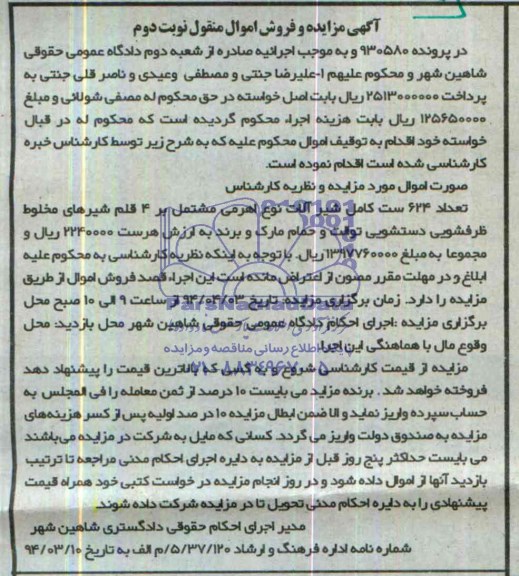 آگهی مزایده و فروش اموال منقول نوبت دوم
در پرونده ۹۳۰۵۸۰ و به موجب اجرائیه صادره از شعبه دوم دادگاه عمومی حقوقی
شاهین شهر و محکوم علیهم ۱-علیرضا جنتی و مصطفی وعیدی و ناصر قلی جنتی به
پرداخت ۲۵۱۳۰۰۰۰۰۰ ریال بابت اصل خواسته در حق محکوم له مصفی شولائی و مبلغ
۱۲۵۶۵۰۰۰۰ ریال بابت هزینه اجراء محکوم گردیده است که محکوم له در قبال
خواسته خود اقدام به توقیف اموال محکوم علیه که به شرح زیر توسط کارشناس خبره
کارشناسی شده است اقدام نموده است.
صورت اموال مورد مزایده و نظریه کارشناس
تعداد ۶۲۴ ست کامل شیر آلات نوع اهرمی مشتمل بر ۴ قلم شیرهای مخلوط
ظرفشویی دستشویی توالت و حمام مارک و برند به ارزش هرست ۲۲۴۰۰۰۰ ریال و
مجموعا به مبلغ ۱۳۹۷۷۶۰۰۰۰ ریال. با توجه به اینکه نظریه کارشناسی به محکوم علیه
ابلاغ و در مهلت مقرر مصون از اعتراض مانده است این اجراء قصد فروش اموال از طریق
مزایده را دارد. زمان برگزاری مزایده: تاریخ ۹۴/۰۴/۰۳ از ساعت ۹ الی ۱۰ صبح محل
برگزاری مزایده :اجرای احکام دادگاه عمومی حقوقی شاهین شهر محل بازدید: محل
وقوع مال با هماهنگی این اجرا.
مزایده از قیمت کارشناسی شروع و به کسی که بالاترین قیمت را پیشنهاد دهد
فروخته خواهد شد . برنده مزاید می بایست ۱۰ درصد از ثمن معامله را فی المجلس به
حساب سپرده واریز نماید و الا ضمن ابطال مزایده ۱۰ در صد اولیه پس از کسر هزینه های
مزایده به صندوق دولت واریز می گردد. کسانی که مایل به شرکت در مزایده می باشند
می بایست حداکثر پنج روز قبل از مزایده به دایره اجرای احکام مدنی مراجعه تا ترتیب
بازدید آنها از اموال داده شود و در روز انجام مزایده در خواست کتبی خود همراه قیمت
پیشنهادی را به دایره احکام مدنی تحویل تا در مزایده شرکت داده شوند.
مدیر اجرای احکام حقوقی دادگستری شاهین شهر
شماره نامه اداره فرهنگ و ارشاد ۵/۳۷/۱۲۰/م الف به تاریخ ۹۴/۰۳/۱۰